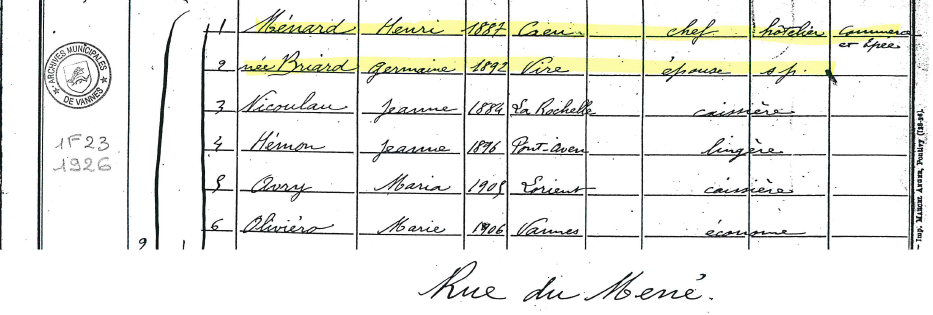 1 Ménard Henri 1887 Caen chef hôtelier Commerce et Epée
2 née Briard Germaine 1892 Vire épouse s.p.
3 Nicoulau Jeanne 1884 La Rochelle caissière
4 Hémon Jeanne 1896 Pont-aven lingère
5 Avry Maria 1905 Lorient caissière
6 Oliviéro Marie 1906 Vannes économe
ARCHIVES MUNICIPALES DE VANNES
1F23
1926
Imp. MARCEL ANGER, Pontivy
Rue du Mené.